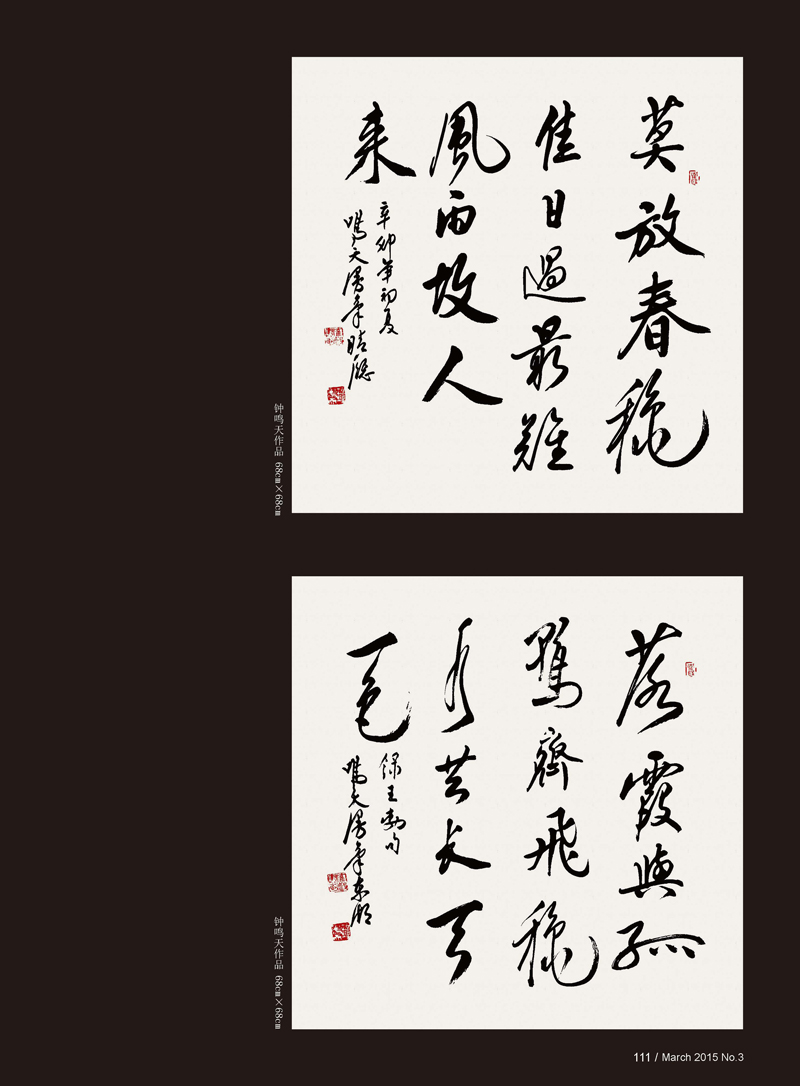 莫放春秋
佳日過最難
風雨故人
来
辛卯年初夏
鳴天漫筆
钟鸣天作品 68cm×68cm
落霞與孤
鶩齊飛秋
水共长天
一色
録王勃句
鳴天漫筆
钟鸣天作品 68cm×68cm
111 / March 2015 No.3